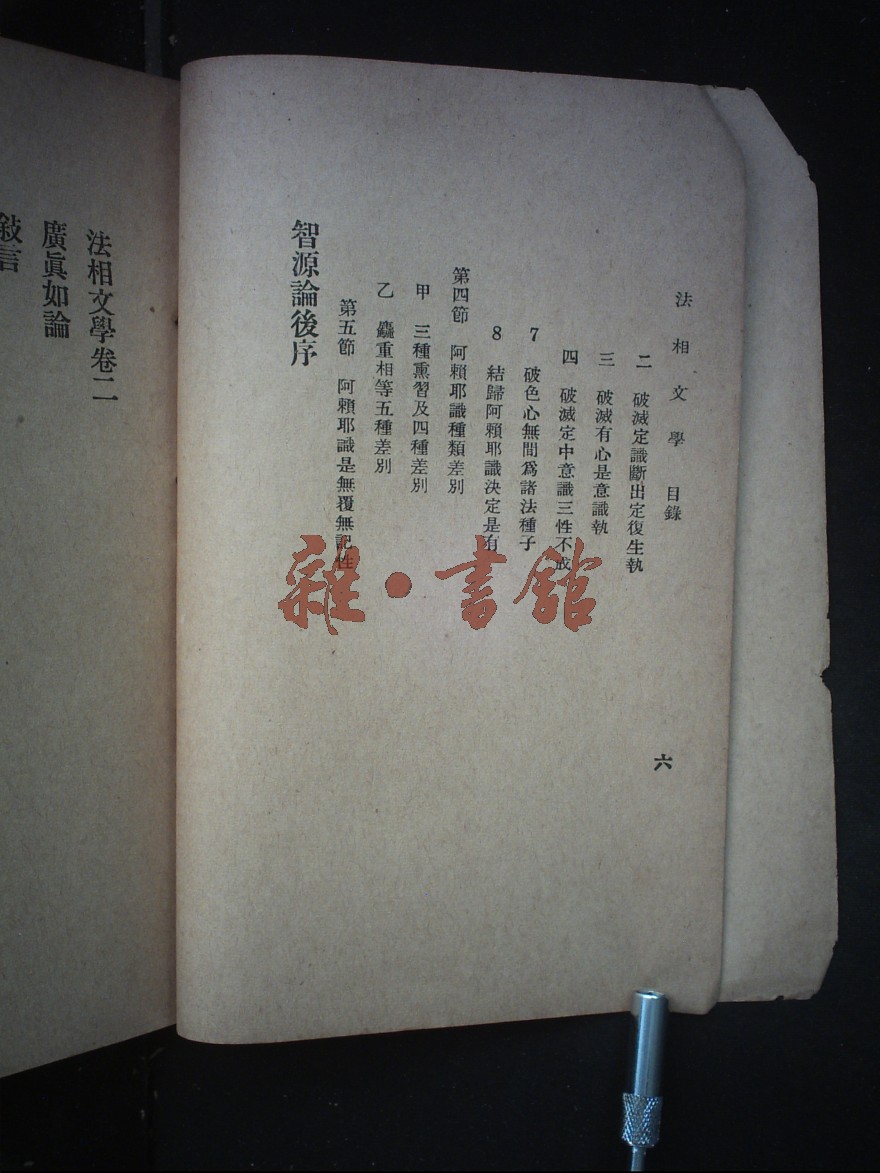 法相文學 目錄 六
二 破滅定識斷出定復生執
三 破滅有心是意識執
四 破滅定中意識三性不成
7 破色心無間爲諸法種子
8 結歸阿賴耶識決定是有
第四節 阿賴耶識種類差別
甲 三種熏習及四種差別
乙 麤重相等五種差別
第五節 阿賴耶識是無覆無記性
智源論後序
法相文學卷二
廣眞如論
敍言
雜·書館